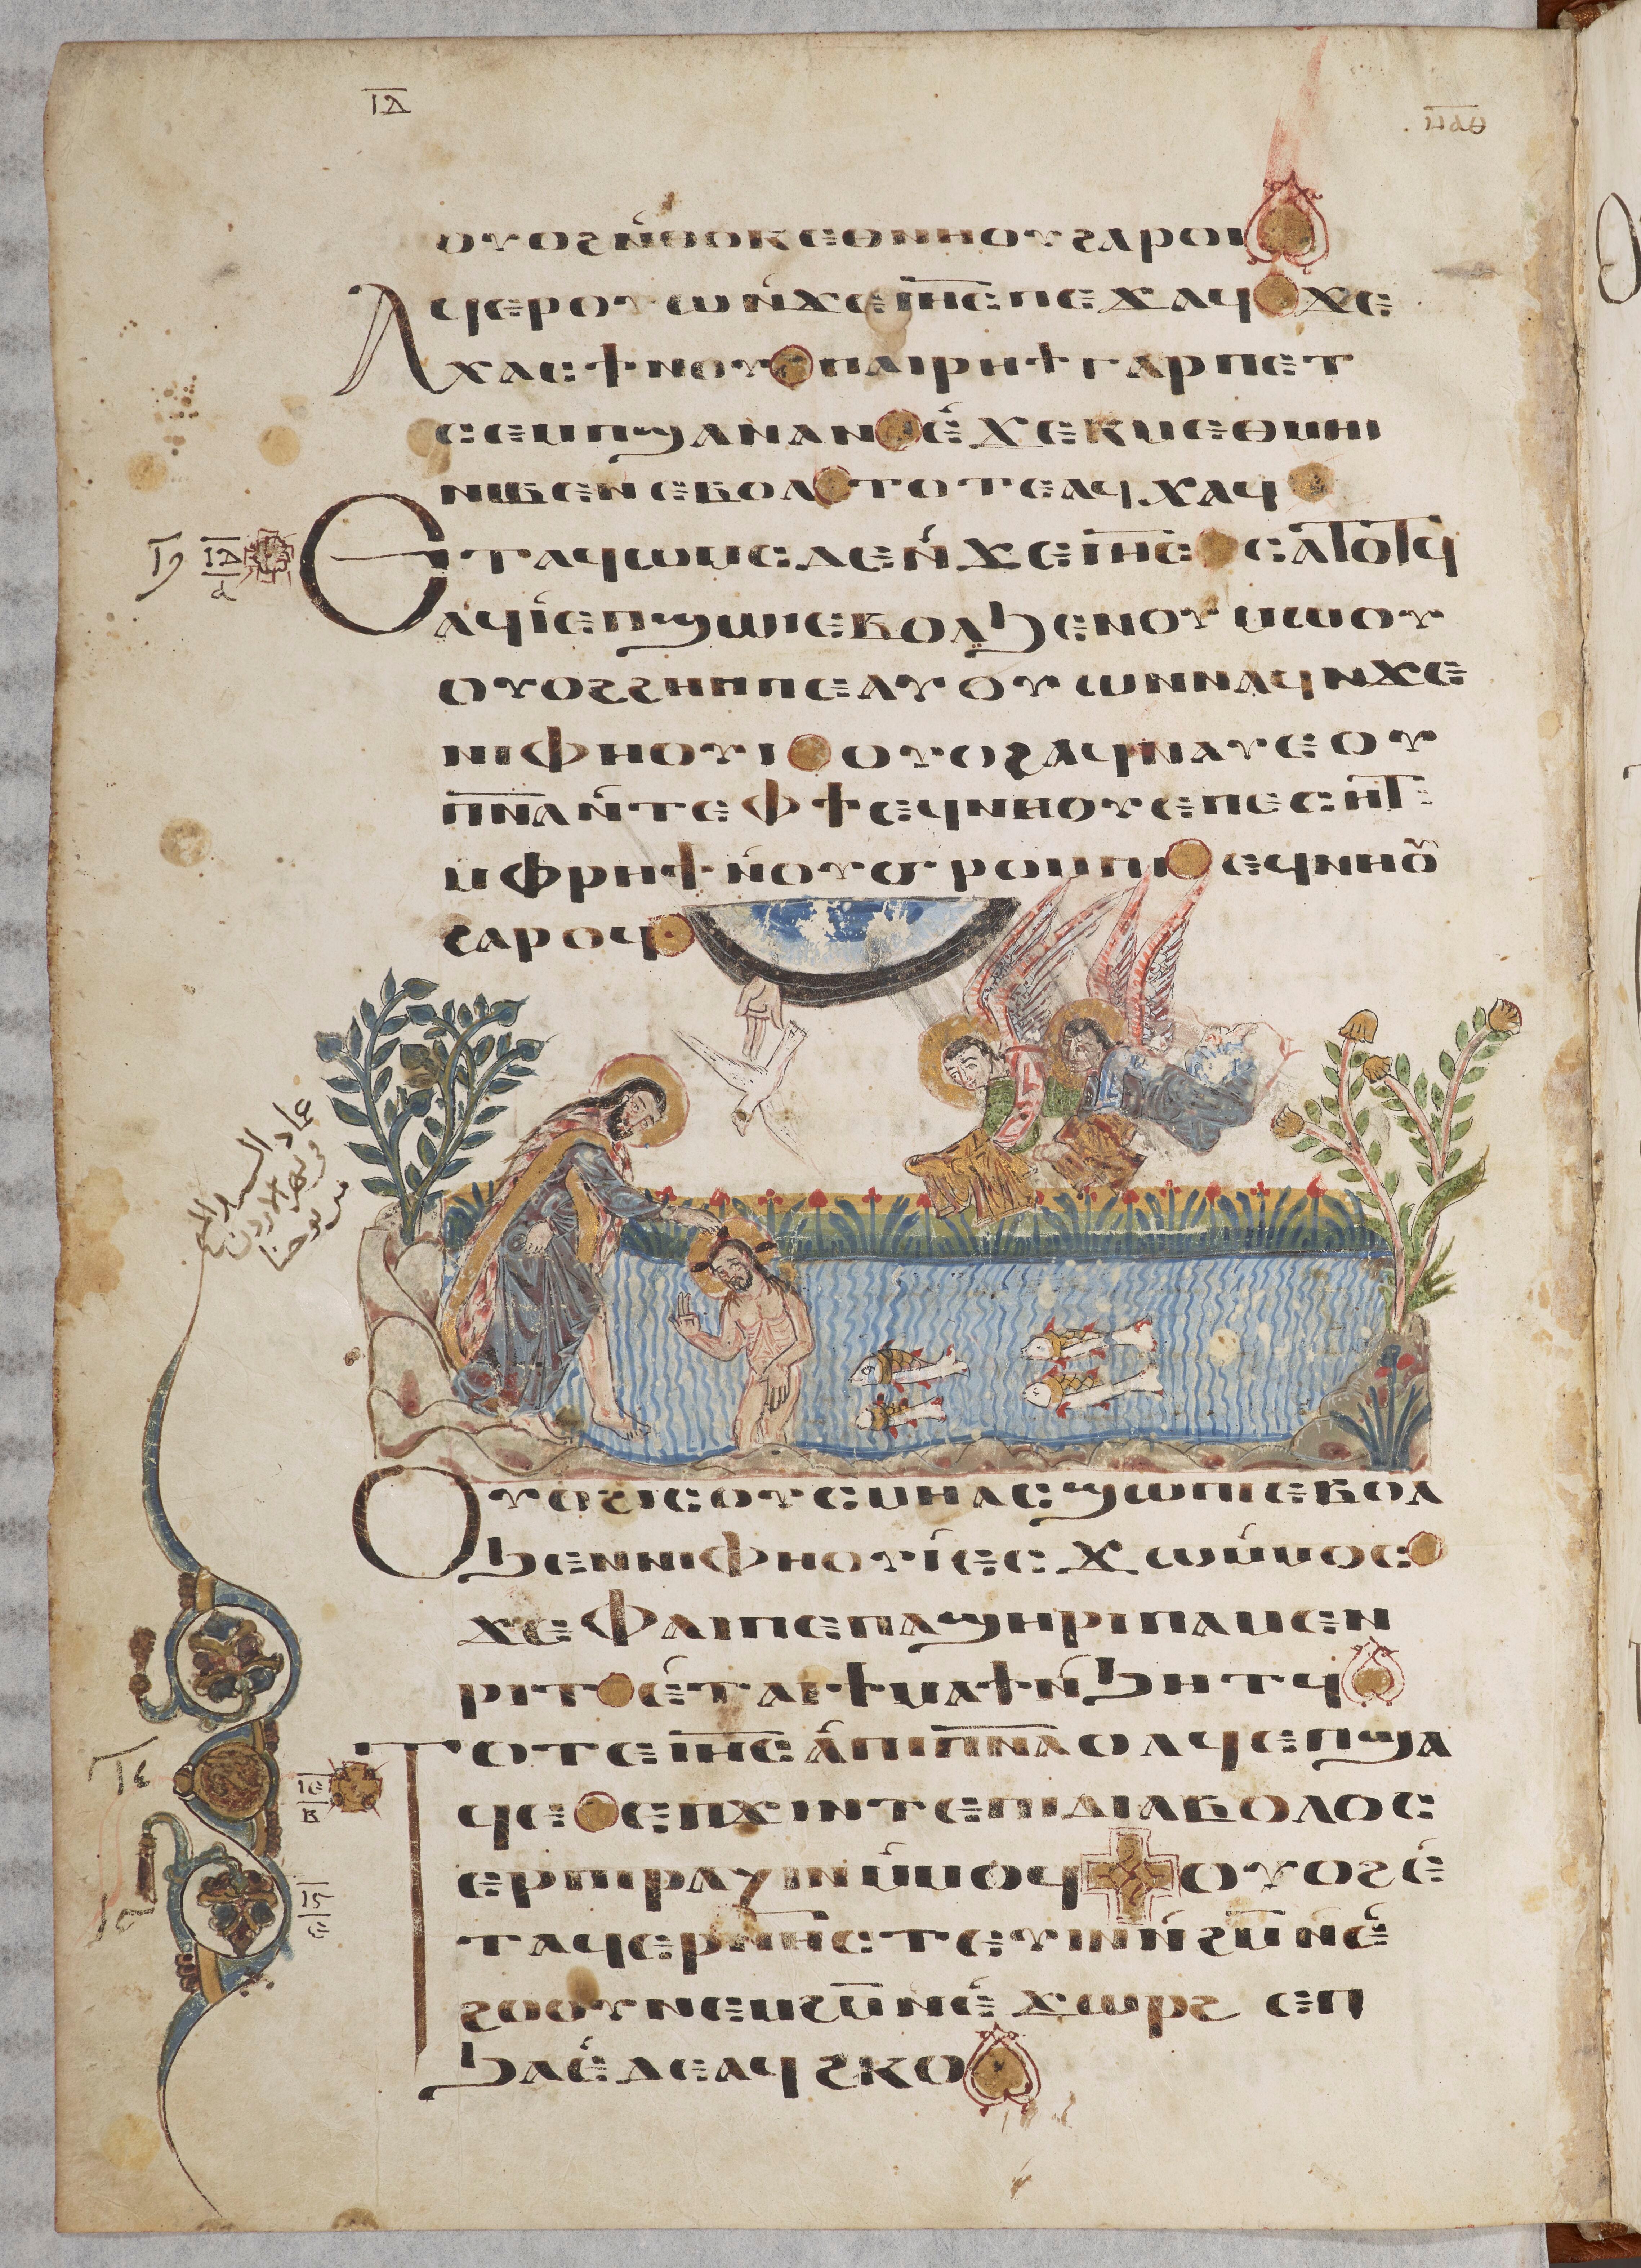 ⲓⲇ
ⲟⲩⲟϩⲛ̀ⲑⲟⲕⲉⲑⲛⲏⲟⲩϩⲁⲣⲟⲓ
Ⲁϥⲉⲣⲟⲩⲱⲛ̀ϫⲉⲓ̅ⲏ̅ⲥ̅ⲡⲉϫⲁϥϫⲉ
ⲭⲁⲥϯⲛⲟⲩⲡⲁⲓⲣⲏϯⲅⲁⲣⲡⲉⲧ
ⲥⲉⲙⲡϣⲁⲛⲁⲛⲉ̀ϫⲉⲕⲙⲉⲑⲙⲏⲓ
ⲛⲓⲃⲉⲛⲉⲃⲟⲗⲧⲟⲧⲉⲁϥⲭⲁϥ
ⲓⲇ
ⲁ
Ⲉⲧⲁϥⲱⲙⲥⲇⲉⲛ̀ϫⲉⲓ̅ⲏ̅ⲥ̅ⲥⲁⲧⲟⲧϥ
ⲁϥⲓ̀ⲉⲡϣⲱⲓⲉⲃⲟⲗϧⲉⲛⲟⲩⲙⲱⲟⲩ
ⲟⲩⲟϩϩⲏⲡⲡⲉⲁⲩⲟⲩⲱⲛⲛⲁϥⲛϫⲉ
ⲛⲓⲫⲏⲟⲩⲓⲟⲩⲟϩⲁϥⲛⲁⲩⲉⲟⲩ
ⲡ̅ⲛ̅ⲁ̅ⲛ̀ⲧⲉⲫϯⲉϥⲛⲏⲟⲩⲉⲡⲉⲥⲏⲧ
ⲙⲫⲣⲏϯⲛ̀ⲟⲩϭⲣⲟⲙⲡⲓⲉϥⲛⲏⲟⲩ
ϩⲁⲣⲟϥ
عماد السيد المسيح
في نهر الاردن
من يوحنا
Ⲟⲩⲟϩⲓⲥⲟⲩⲥⲙⲏⲁⲥϣⲱⲡⲓⲉⲃⲟⲗ
ϧⲉⲛⲛⲓⲫⲏⲟⲩⲓ̀ⲉⲥϫⲱⲙ̀ⲙⲟⲥ
ϫⲉⲫⲁⲓⲡⲉⲡⲁϣⲏⲣⲓⲡⲁⲙⲉⲛ
ⲣⲓⲧⲉ̀ⲧⲁⲓϯⲙⲁϯⲛ̀ϧⲏⲧϥ
Ⲧⲟⲧⲉⲓ̅ⲏ̅ⲥ̅ⲁ̀ⲡⲓⲡ̅ⲛ̅ⲁ̅ⲟⲗϥⲉⲡϣⲁ
ⲓⲉ
ⲃ
ϥⲉⲉⲡϫⲓⲛⲧⲉⲡⲓⲇⲓⲁⲃⲟⲗⲟⲥ
ⲉⲣⲡⲓⲣⲁⲍⲓⲛⲙ̀ⲙⲟϥⲟⲩⲟϩⲉ̀
ⲓⲋ
ⲉ
ⲧⲁϥⲉⲣⲛⲏⲥⲧⲉⲩⲓⲛⲛ̀ϩ̅ⲙ̅ⲛⲉ̀
ϩⲟⲟⲩⲛⲉⲙϩ̅ⲙ̅ⲛⲉ̀ϫⲱⲣϩⲉⲡ
ϧⲁⲉ̀ⲇⲉⲁϥϩⲕⲟ